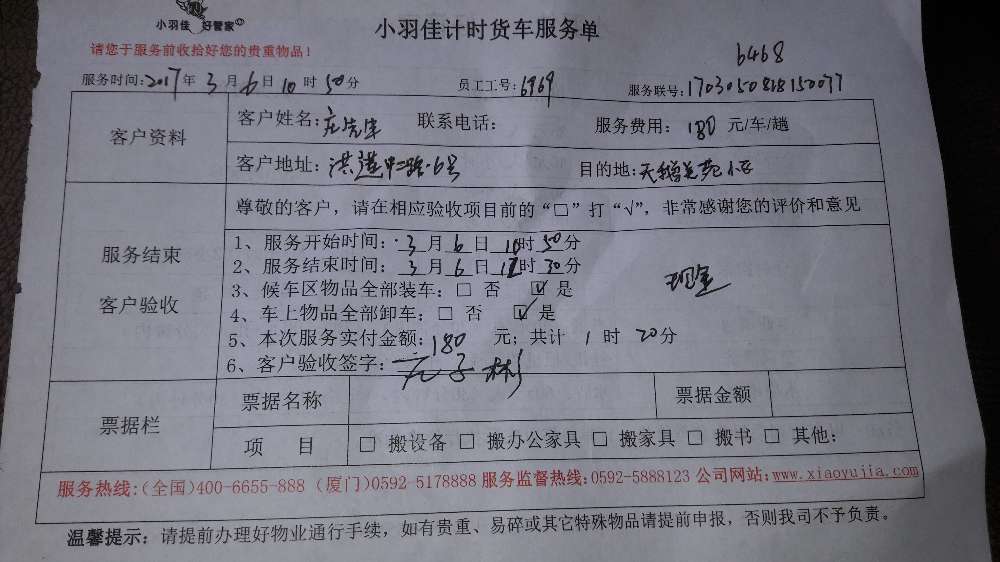 小羽佳 好管家
小羽佳计时货车服务单
请您于服务前收拾好您的贵重物品！
6468
服务时间:2017年3月6日10时50分 员工工号:6969 服务联号:
客户资料
客户姓名:庄先生 联系电话: 服务费用: 180 元/车/趟
客户地址: 洪莲中二路6号 目的地:天鹅美苑小区
服务结束
客户验收
尊敬的客户，请在相应验收项目前的“□”打“√”，非常感谢您的评价和意见
1、服务开始时间: 3月6日10时50分
2、服务结束时间: 3月6日12时30分
3、候车区物品全部装车: □ 否 ☑ 是
现金
4、车上物品全部卸车: □ 否 ☑ 是
5、本次服务实付金额: 180 元; 共计 1 时 20分
6、客户验收签字: 庄子彬
票据栏
票据名称 票据金额
项 目 □ 搬设备 □ 搬办公家具 □ 搬家具 □ 搬书 □ 其他:
服务热线:(全国)400-6655-888 (厦门)0592-5178888 服务监督热线:0592-5888123 公司网站:www.xiaoyujia.com
温馨提示: 请提前办理好物业通行手续，如有贵重、易碎或其它特殊物品请提前申报，否则我司不予负责。